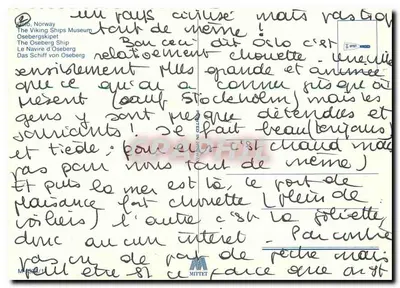 un pays cruise mais pas trop
tout de même !
Oslo, Norway
The Viking Ships Museum
Osebergskipet
The Oseberg Ship
Le Navire d'Oseberg
Das Schiff von Oseberg
Bon ceci dit Oslo c'est
relativement chouette. une ville
sensiblement plus grande et animée
que ce qu'on a connu jusque à
présent (sauf Stockholm) mais les
gens y sont presque détendus et
souriants ! Il fait beau (toujours)
et tiède, pour eux c'est chaud mais
pas pour nous tout de même)
Et puis la mer est là, le port de
plaisance fort chouette (plein de
voiliers) l'autre c'est la
donc aucun intérêt. Par contre
pas vu de port de pêche mais
peut être est ce parce que
MITTET